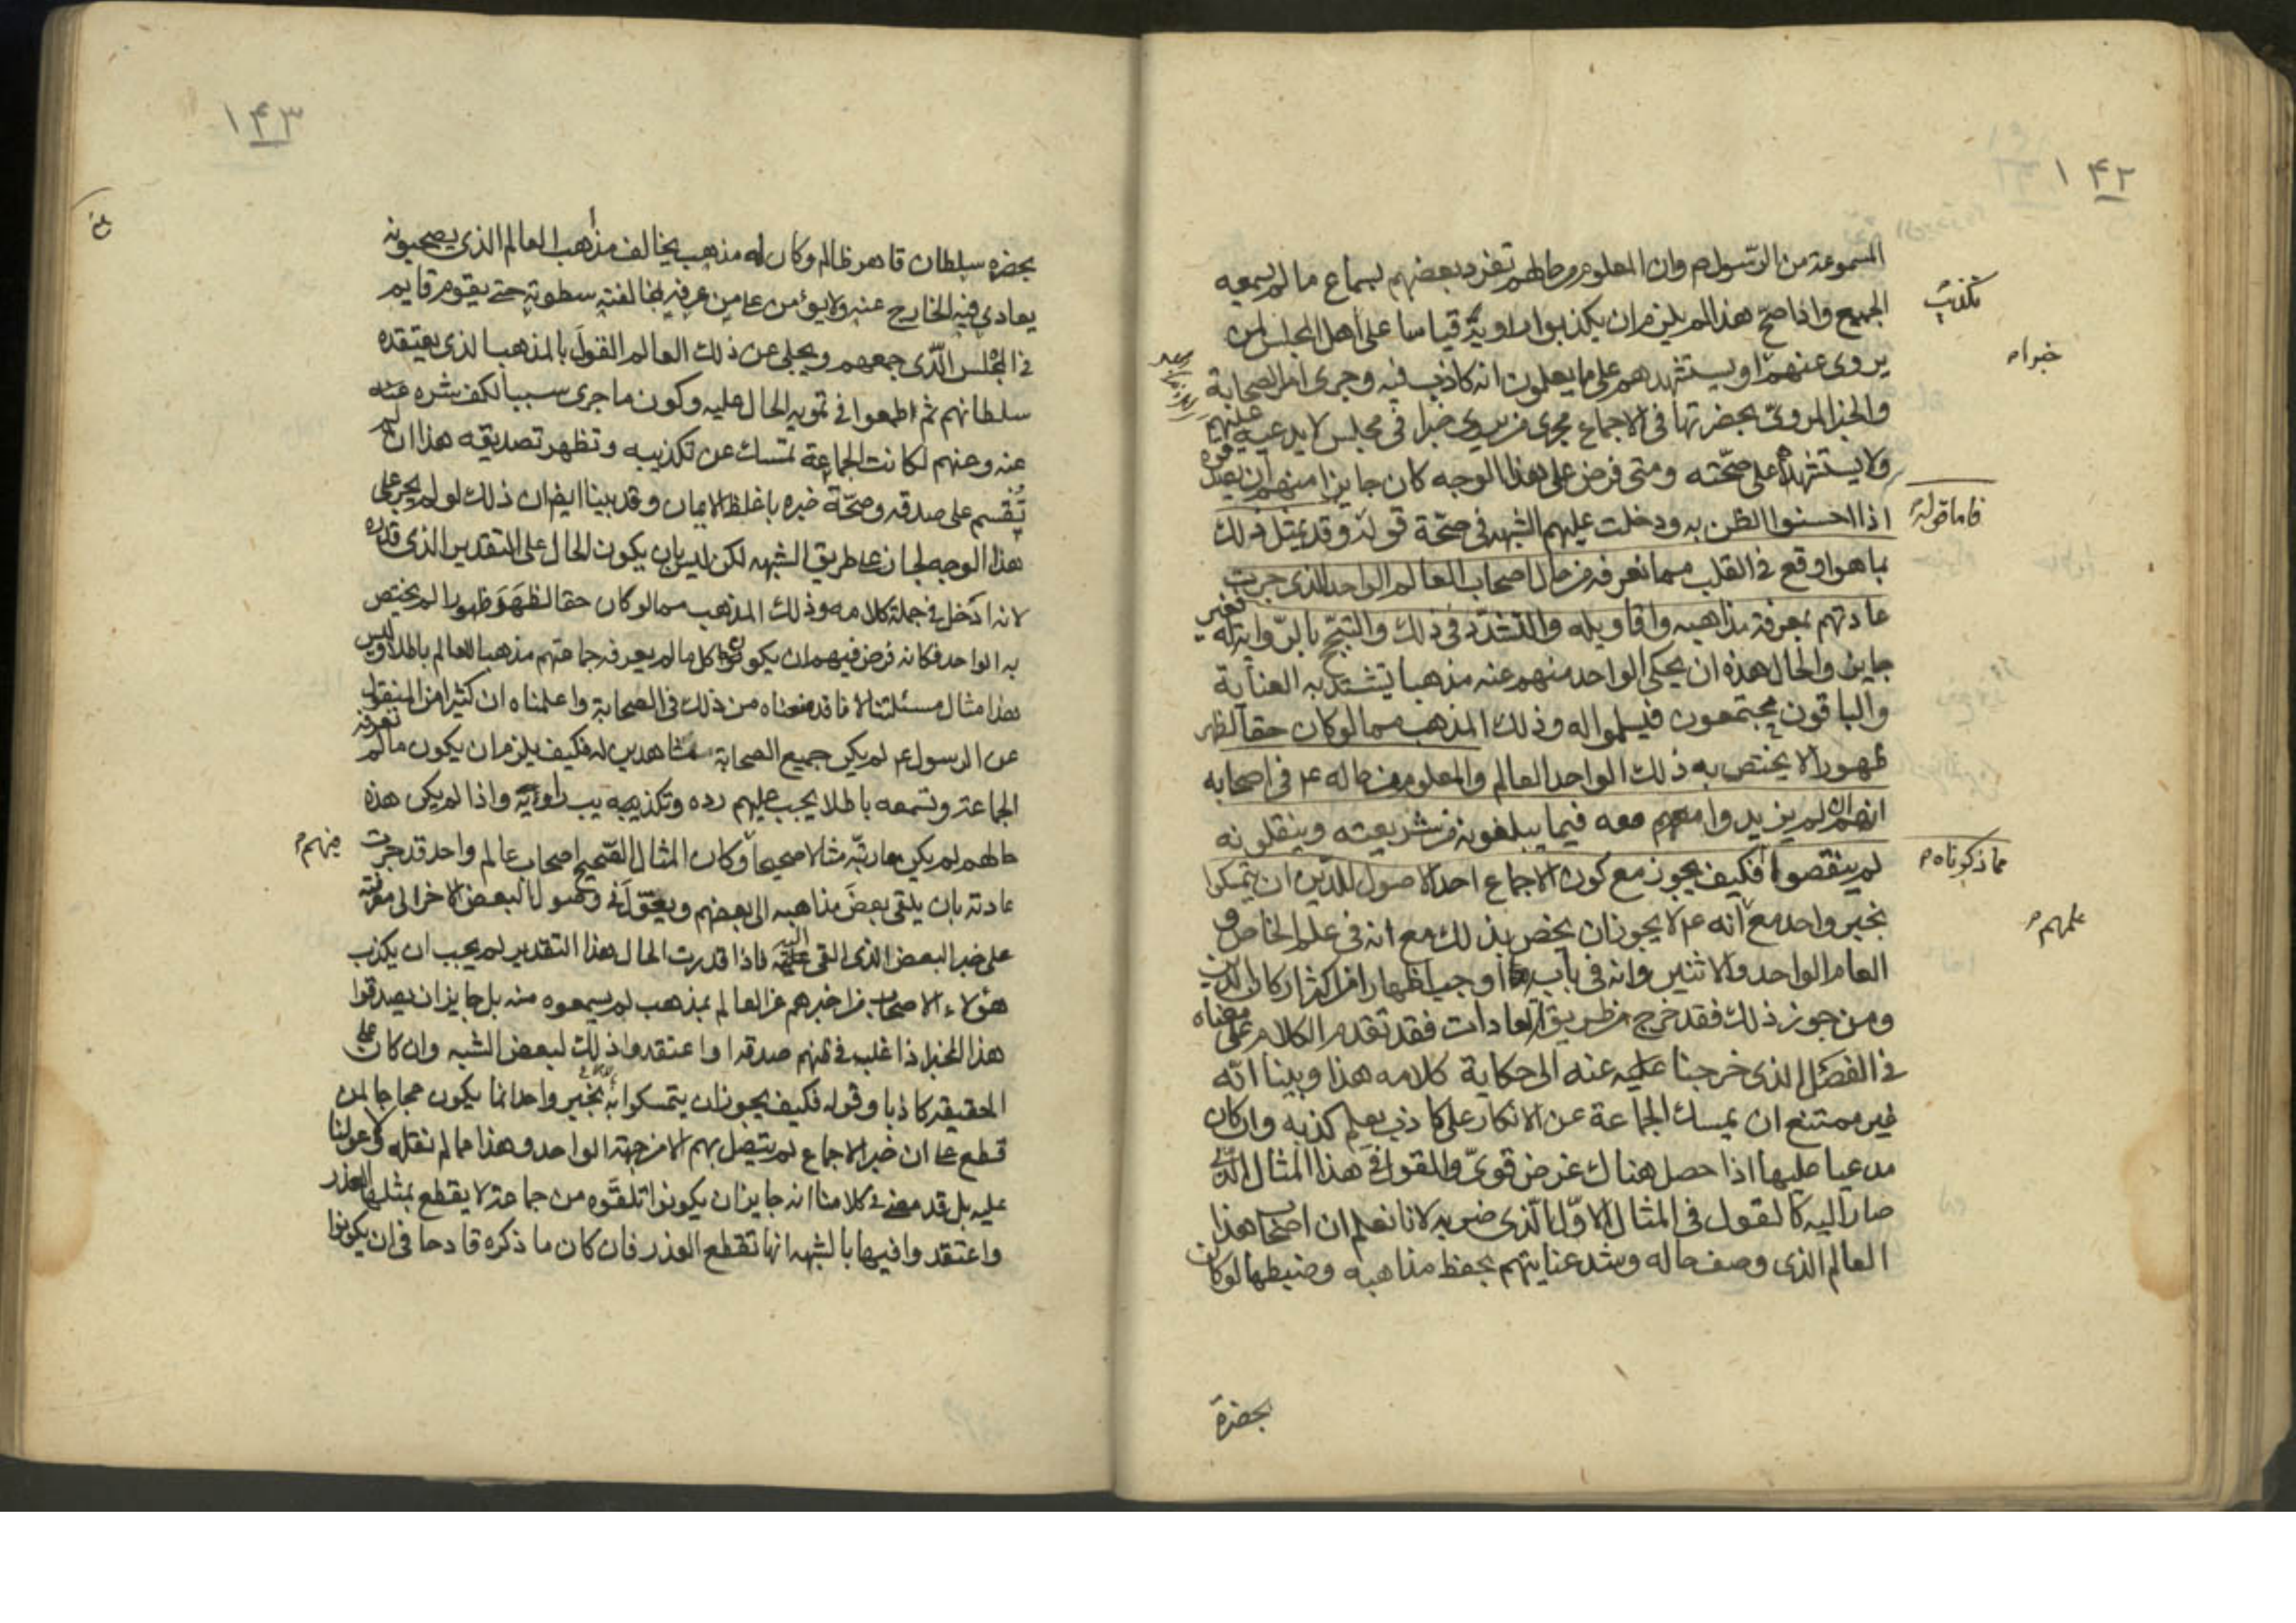 ١٤٢
المسموعة من الرّسول ص وان المعلوم من حالهم تفرد بعضهم بسماع ما لم يسمعه
الجميع واذا صحّ هذا لم يلزم ان يكذبوا راويه قياسا على اهل المجلس لمن
تكذيب
خبرا م
يروى عنهم او يستشهدهم على ما يعلمون انه كاذب فيه وجرى امر الصحابة
والخبر المروىّ بحضرتها فى الاجماع مجرى من يروى خبرا فى مجلس لا يدعيه عليهم
ولا يستشهدهم على صحّته ومتى فرض على هذا الوجه كان جايزا منهم ان
اذا احسنوا الظن به ودخلت عليهم الشبهه فى صحّة قوله وقد يمثل ذلك
فاما قوله
بما هو اوقع فى القلب مما نعرفه من حال اصحاب العالم الواحد الذى جرت
عادتهم بمعرفة مذاهبه واقاويله والتشدّد فى ذلك والتبجّح بالرّواية له فغير
جايز والحال هذه ان يحكى الواحد منهم عنه مذهبا تشتدّ به العناية
والباقون مجتمعون فيسلموا له وذلك المذهب مما لو كان حقا لظهر
ظهورا لا يختص به ذلك الواحد العالم والمعلوم من حاله ع فى اصحابه
انهم ان لم يزيدوا معه فيما يبلغونه من شريعته وينقلونه
لم ينقصوا فكيف يجوز مع كون الاجماع احد الاصول للدّين ان يتمسكوا
مما ذكرناه م
بخبر واحد مع انه ع لا يجوز ان يخص بذلك مع انه فى علم الخاص و
علمهم م
العام الواحد والاثنين وانه فى باب ما اوجب اظهارا من اكثر اركان الدين
ومن جوز ذلك فقد خرج من طريق العادات فقد تقدم الكلام على معناه
فى الفصل الذى خرجنا عنه الى حكاية كلامه هذا وبينا انّه
غير ممتنع ان يمسك الجماعة عن الانكار على كاذب يعلم كذبه وان كان
مدعيا عليها اذا حصل هناك غرض قوىّ والقول فى هذا المثال الذى
صار اليه كالقول فى المثال الاوّل الّذى ضربه لانا نعلم ان اصحاب هذا
العالم الذى وصف حاله وشدة عنايتهم بحفظ مذاهبه وضبطها لو كان
بحضرة
١٤٣
بحضرة سلطان قاهر ظالم وكان له مذهب يخالف مذهب العالم الذى يصحبونه
يعادى فيه الخارج عنه ولا يؤمن على من عرف بمخالفته سطوته حتى يقوم قايم
فى المجلس الّذى جمعهم ويحكى عن ذلك العالم القول بالمذهب الذى يعتقده
سلطانهم ثم اطمعوا فى تمويه الحال عليه وكون ما جرى سببا لكف شره عنه
عنه وعنهم لكانت الجماعة تمسك عن تكذيبه وتظهر تصديقه هذا ان لم
تُقسم على صدقه وصحّة خبره باغلظ الايمان وقد بينا ايضا ان ذلك لو لم يجر على
هذا الوجه لجاز على طريق الشبهه لكن ليس بان يكون الحال على التقدير الذى قدره
لانه ادخل فى جملة كلامه وذلك المذهب مما لو كان حقا لظهر ظهورا لم يختص
به الواحد فكانه فرض فيهم ان يكون كل ما لم يعرفه جماعتهم مذهبا للعالم باطلا وليس
هذا مثال مسئلتنا لانا قد منعناه من ذلك فى الصحابة واعلمناه ان كثيرا من المنقول
عن الرسول ع لم يكن جميع الصحابة مشاهدين له فكيف يلزم ان يكون ما لم تعرفه
الجماعة وتسمعه باطلا يجب عليهم رده وتكذيب راويه واذا لم يكن هذه
حالهم لم يكن ما رتبّه مثالا صحيحا وكان المثال الصّحيح اصحاب عالم واحد قد جرت
منهم م
عادته بان يلقى بعض مذاهبه الى بعضهم ويعوّل فى وصول البعض الاخر الى معرفته
على خبر البعض الذى القى اليه فاذا قدرت الحال هذا التقدير لم يجب ان يكذب
هؤلاء الاصحاب من اخبرهم عن العالم بمذهب لم يسمعوه منه بل جايز ان يصدقوا
هذا المخبر اذا غلب فى ظنهم صدقه او اعتقدوا ذلك لبعض الشبه وان كان على
الحقيقة كاذبا وقوله فكيف يجوز ان يتمسكوا به بخبر واحد انما يكون حجاجا لمن
قطع على ان خبر الاجماع لم يتصل بهم الا من جهة الواحد وهذا مما لم نقله ولا عولنا
عليه بل قد مضى فى كلامنا انه جايز ان يكونوا تلقّوه من جماعة لا يقطع بمثلها العذر
واعتقدوا فيها بالشبهه انها تقطع العذر فان كان ما ذكره قادحا فى ان يكونوا